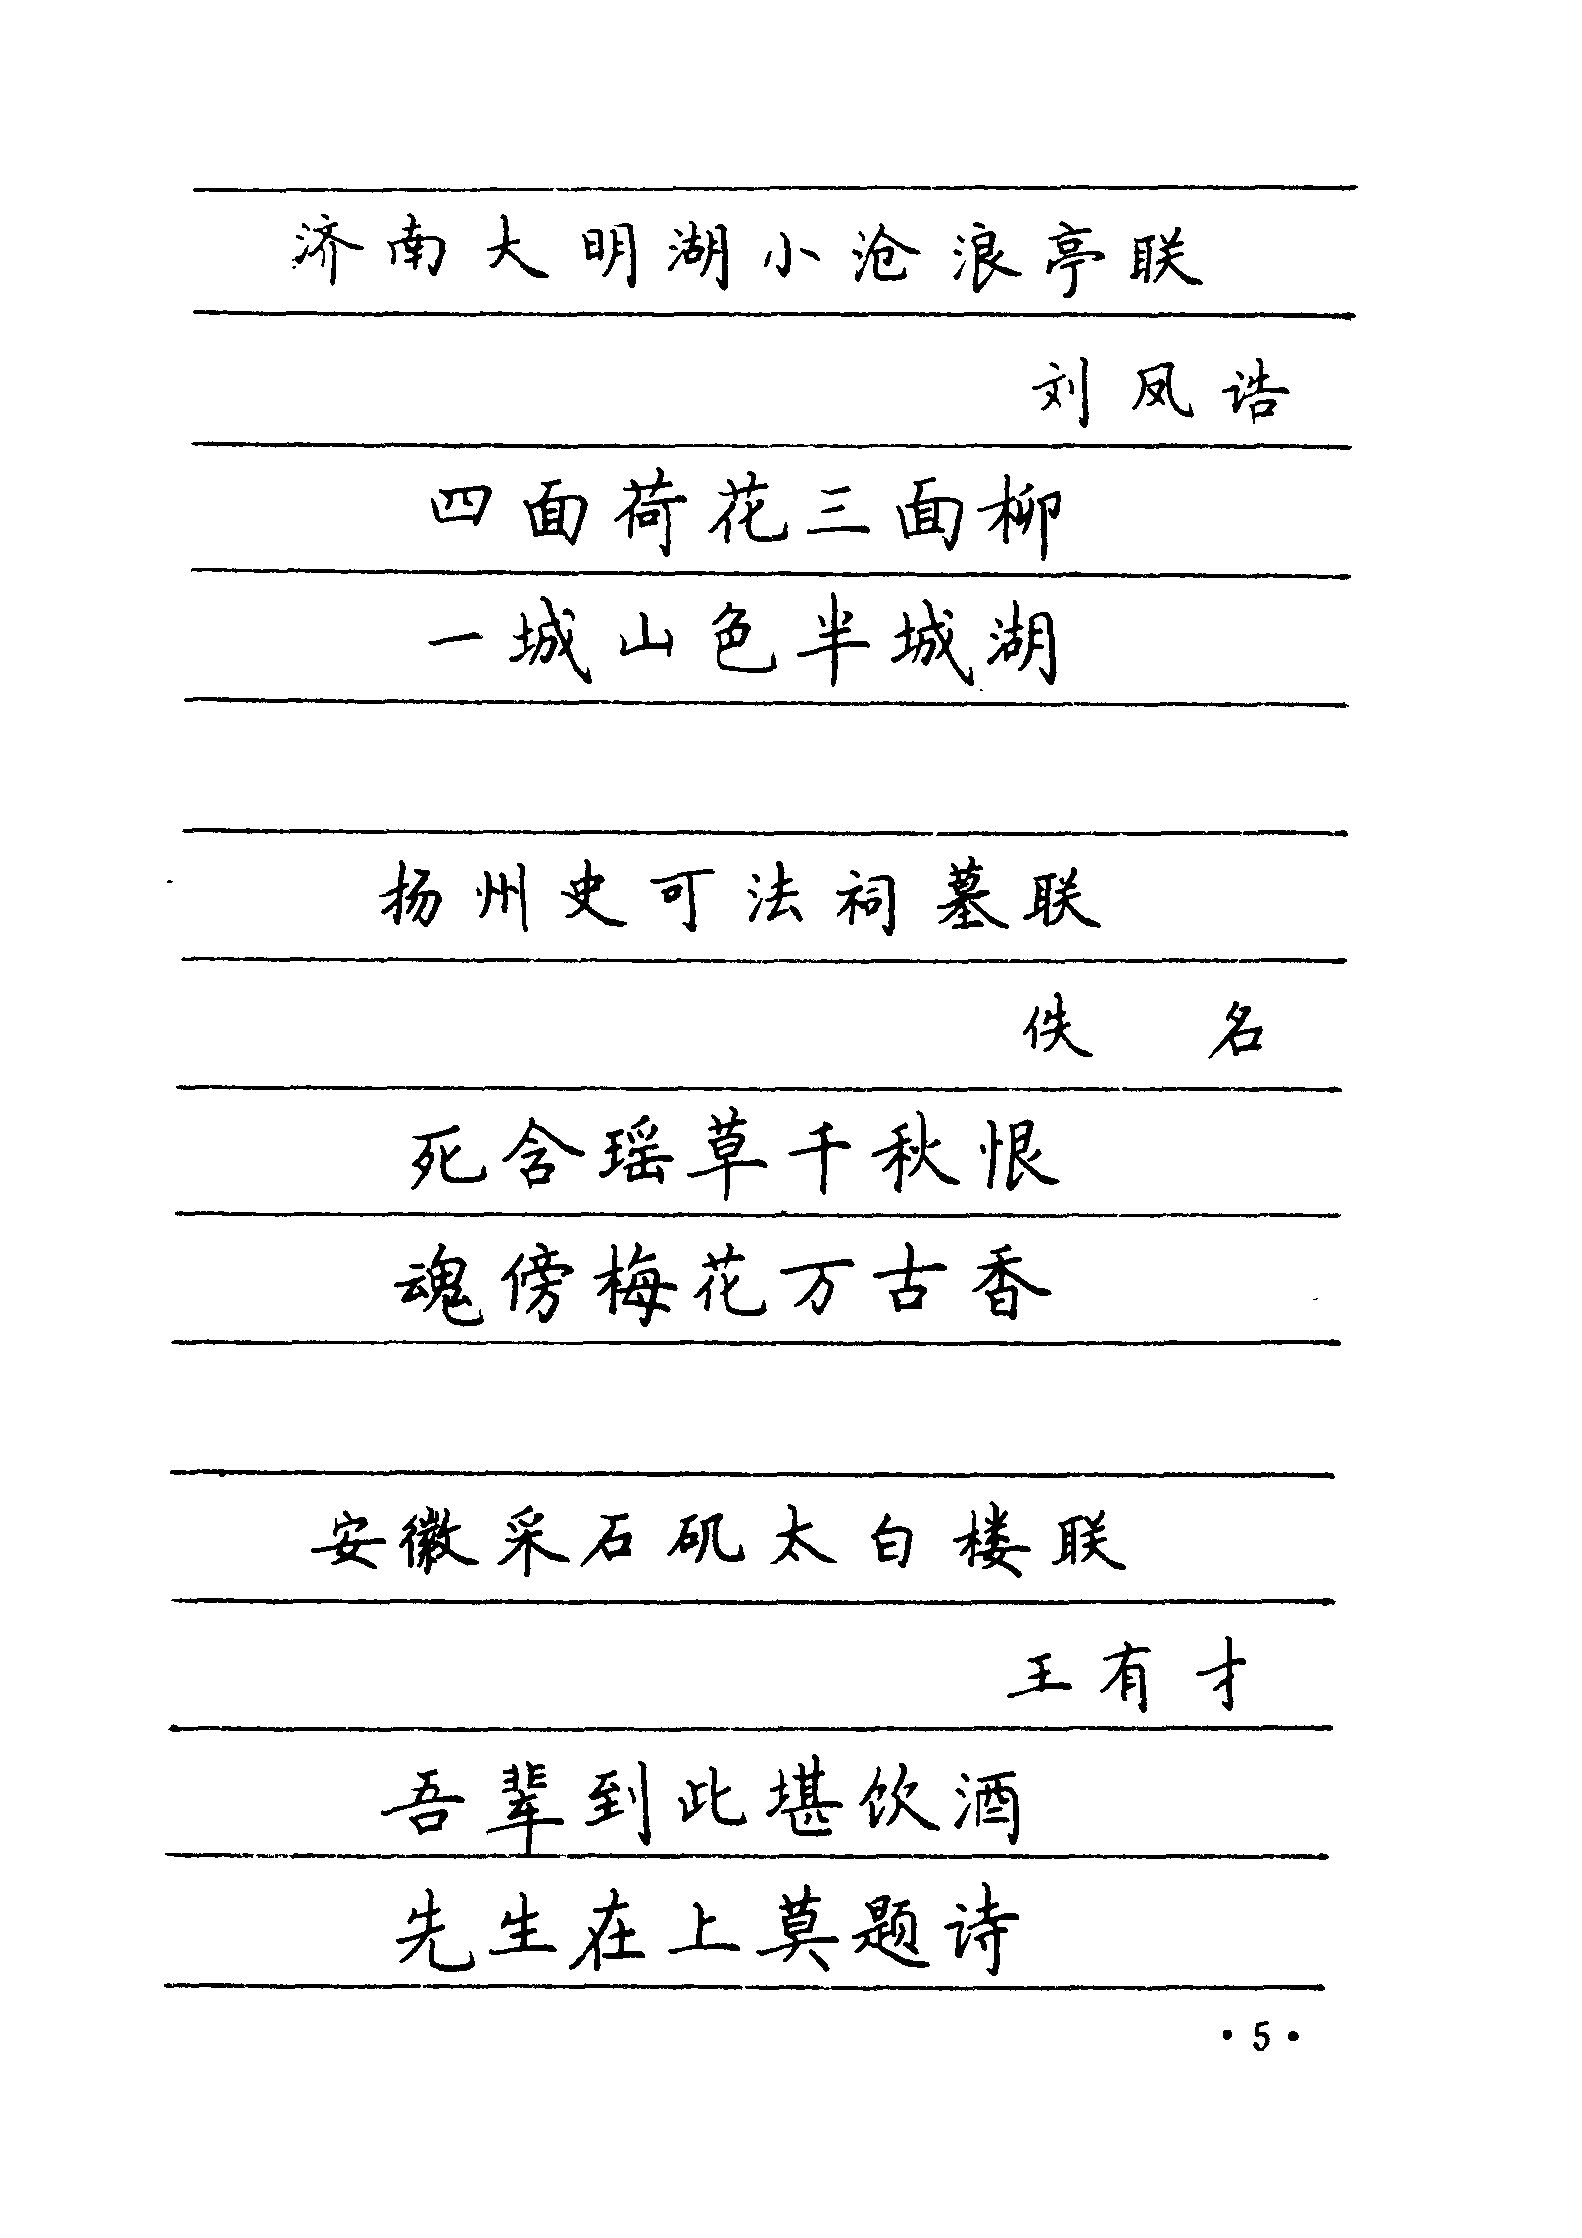 济南大明湖小沧浪亭联
刘凤诰
四面荷花三面柳
一城山色半城湖
扬州史可法祠墓联
佚名
死含瑶草千秋恨
魂傍梅花万古香
安徽采石矶太白楼联
王有才
吾辈到此堪饮酒
先生在上莫题诗
·5·